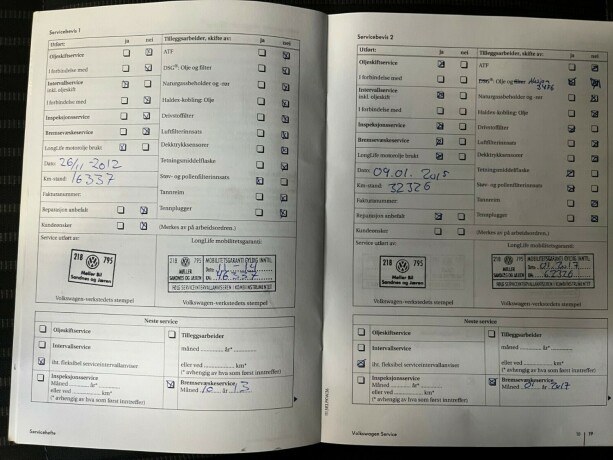 Servicebevis 1
Utført: ja nei
Oljeskiftservice
i forbindelse med
Intervallservice
inkl. oljeskift
i forbindelse med
Inspeksjonsservice
Bremsevæskeservice
LongLife motorolje brukt
Dato: 26/11-2012
Km-stand: 16337
Fakturanummer:
Reparasjon anbefalt
Kundeønsker
Tilleggsarbeider, skifte av: ja nei
ATF
DSG®: Olje og filter
Naturgassbeholder og -rør
Haldex-kobling: Olje
Drivstoffilter
Luftfilterinnsats
Dekktrykksensorer
Tetningsmiddelflaske
Støv- og pollenfilterinnsats
Tannreim
Tennplugger
(Merkes av på arbeidsordren.)
Service utført av:
218 795
Møller Bil
Sandnes og Jæren
LongLife mobilitetsgaranti:
218 795
MØLLER
SANDNES OG JÆREN
MOBILITETSGARANTI GYLDIG INNTIL
Dato:
Volkswagen-verkstedets stempel
Neste service
Oljeskiftservice
Intervallservice
iht. fleksibel serviceintervallanviser
Inspeksjonsservice
Måned år*
eller ved km*
(* avhengig av hva som først inntreffer)
Tilleggsarbeider
måned år*
eller ved km*
(* avhengig av hva som først inntreffer)
Bremsevæskeservice:
Måned 10 år 13
Servicehefte
Servicebevis 2
Utført: ja nei
Oljeskiftservice
i forbindelse med
Intervallservice
inkl. oljeskift
i forbindelse med
Inspeksjonsservice
Bremsevæskeservice
LongLife motorolje brukt
Dato: 09.01.2015
Km-stand: 32326
Fakturanummer:
Reparasjon anbefalt
Kundeønsker
Tilleggsarbeider, skifte av: ja nei
ATF
DSG®: Olje og filter
Naturgassbeholder og -rør
Haldex-kobling: Olje
Drivstoffilter
Luftfilterinnsats
Dekktrykksensorer
Tetningsmiddelflaske
Støv- og pollenfilterinnsats
Tannreim
Tennplugger
(Merkes av på arbeidsordren.)
Service utført av:
218 795
Møller Bil
Sandnes og Jæren
LongLife mobilitetsgaranti:
218 795
MØLLER
SANDNES OG JÆREN
MOBILITETSGARANTI GYLDIG INNTIL
Dato: 01.2017
Volkswagen-verkstedets stempel
Neste service
Oljeskiftservice
Intervallservice
iht. fleksibel serviceintervallanviser
Inspeksjonsservice
Måned år*
eller ved km*
(* avhengig av hva som først inntreffer)
Tilleggsarbeider
måned år*
eller ved km*
(* avhengig av hva som først inntreffer)
Bremsevæskeservice:
Måned 01 år 2017
Volkswagen Service